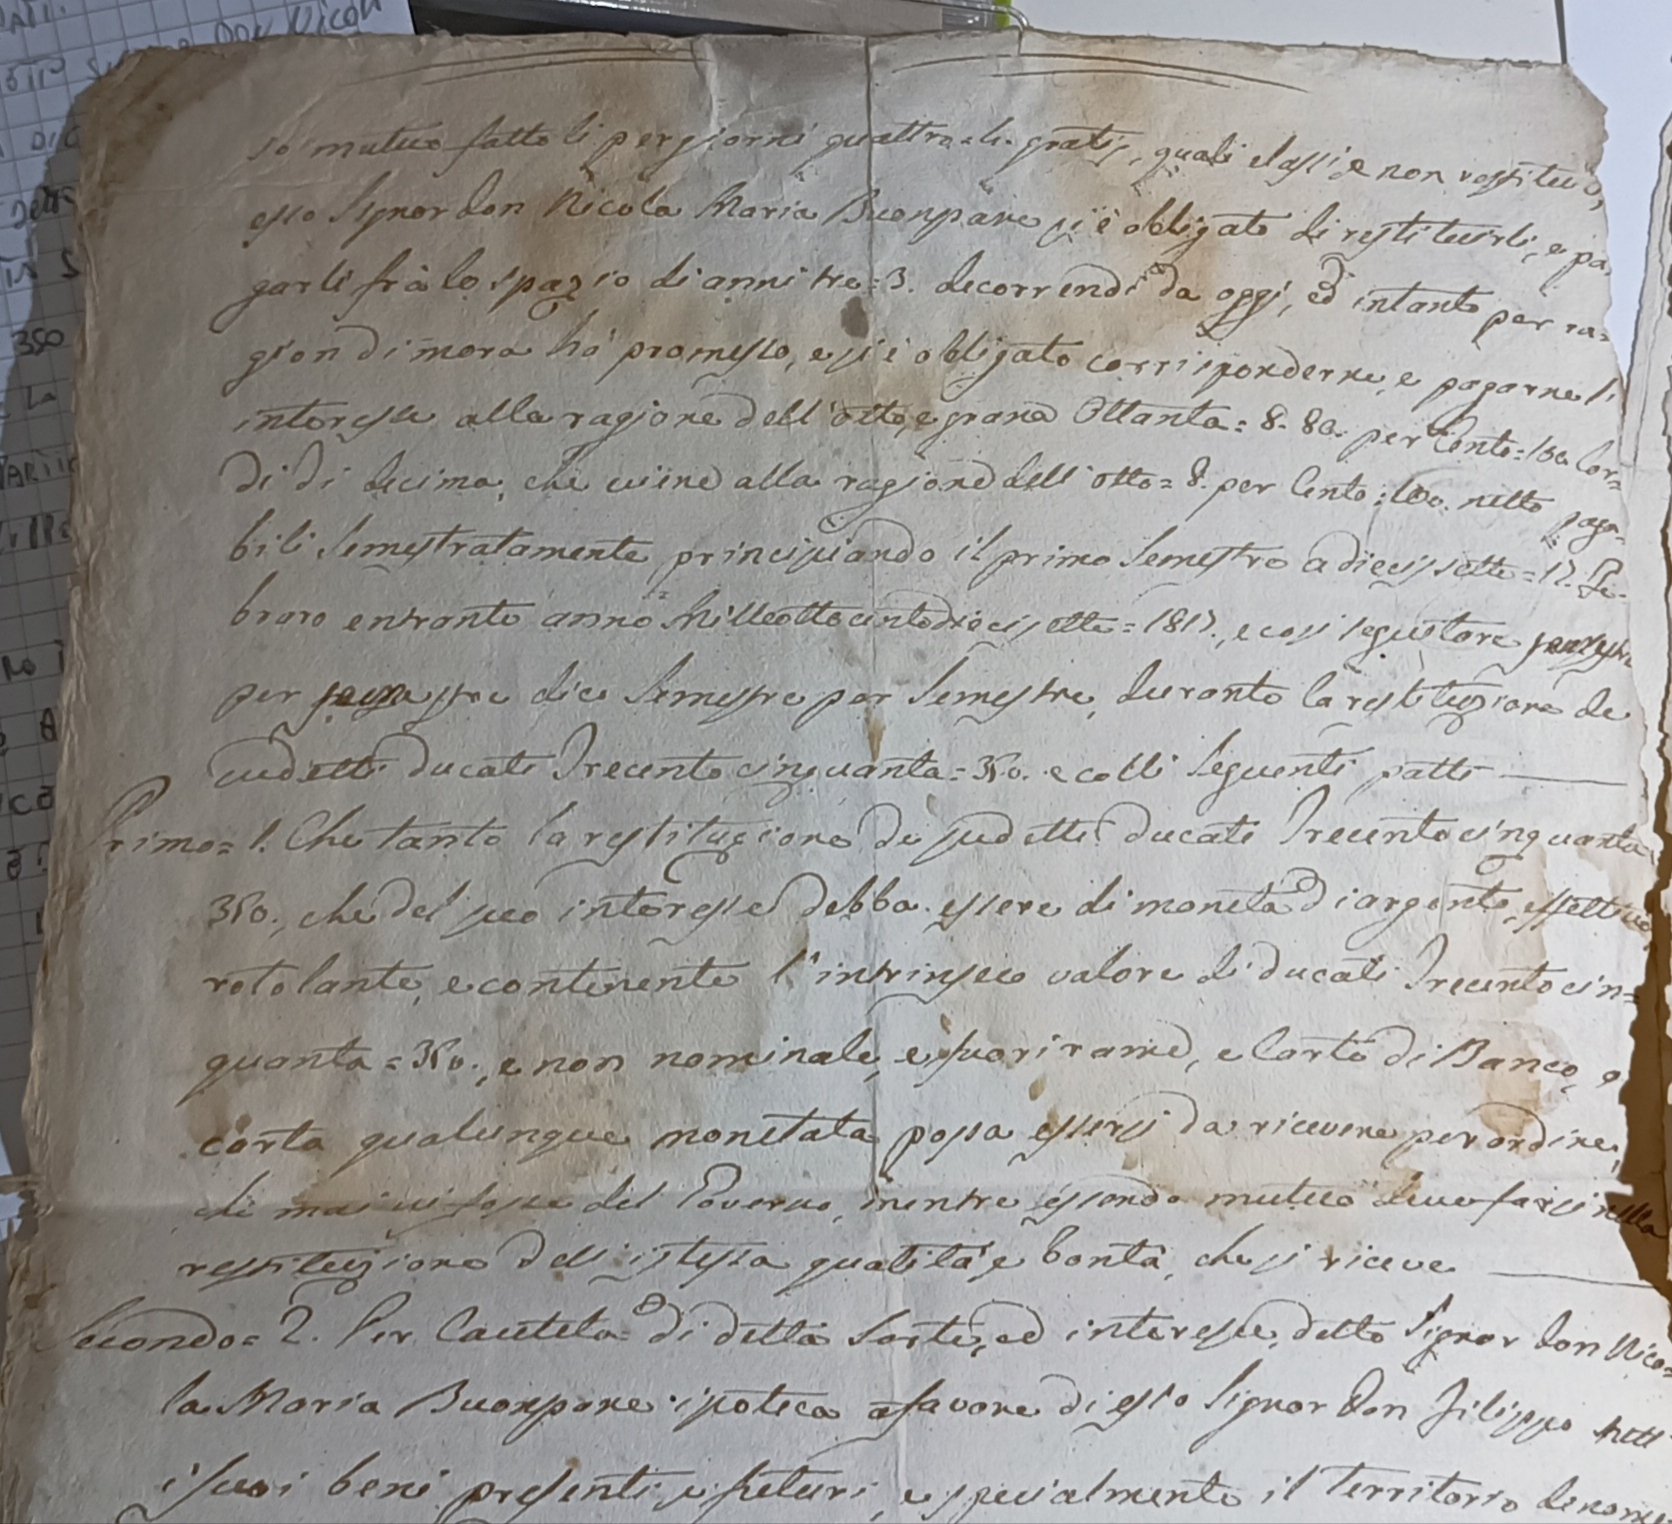 so mutuo fattoli per giorni quattro=4. gratis, quali elassi e non restituiti,
esso Signor Don Nicola Maria Buonpane si è obligato di restituirli, e pa=
garli frà lo spazio di anni tre=3. decorrendi da oggi, ed intanto per ra=
gion di mora hà promesso, e si è obligato corrisponderne, e pagarne l'
interesse alla ragione dell'otto, e grana Ottanta=8.80. per Cento=100. lor=
di di decima, che viene alla ragione dell'otto=8. per Cento=100. netto paga=
bili Semestratamente principiando il primo Semestre a diecissette=17. Fe=
braro entrante anno Milleottocentodiecissette=1817., e così seguitare
per dico Semestre per Semestre, durante la restituzione de
sudetti Ducati Trecentocinquanta=350. e colli seguenti patti
Primo=1. Che tanto la restituzione de sudetti Ducati Trecentocinquanta
350., che del suo interesse debba essere di moneta di argento, effettiva
rotolante, e contenente l'intrinseco valore di ducati Trecentocin=
quanta=350., e non nominale, e fuori rame, e Carte di Banco, o
carta qualunque monetata possa essersi da ricevere per ordine,
che mai vi fosse del Governo, mentre essendo mutuo deve farsi nella
restituzione dell'istessa qualità, e bontà, che si riceve
Secondo=2. Per Cautela di detta Sorte, ed interesse, detto Signor Don Nico=
la Maria Buonpane ipoteca a favore di esso Signor Don Filippo tutti
i suoi beni presenti, e futuri, e specialmente il Territorio denomi=
350